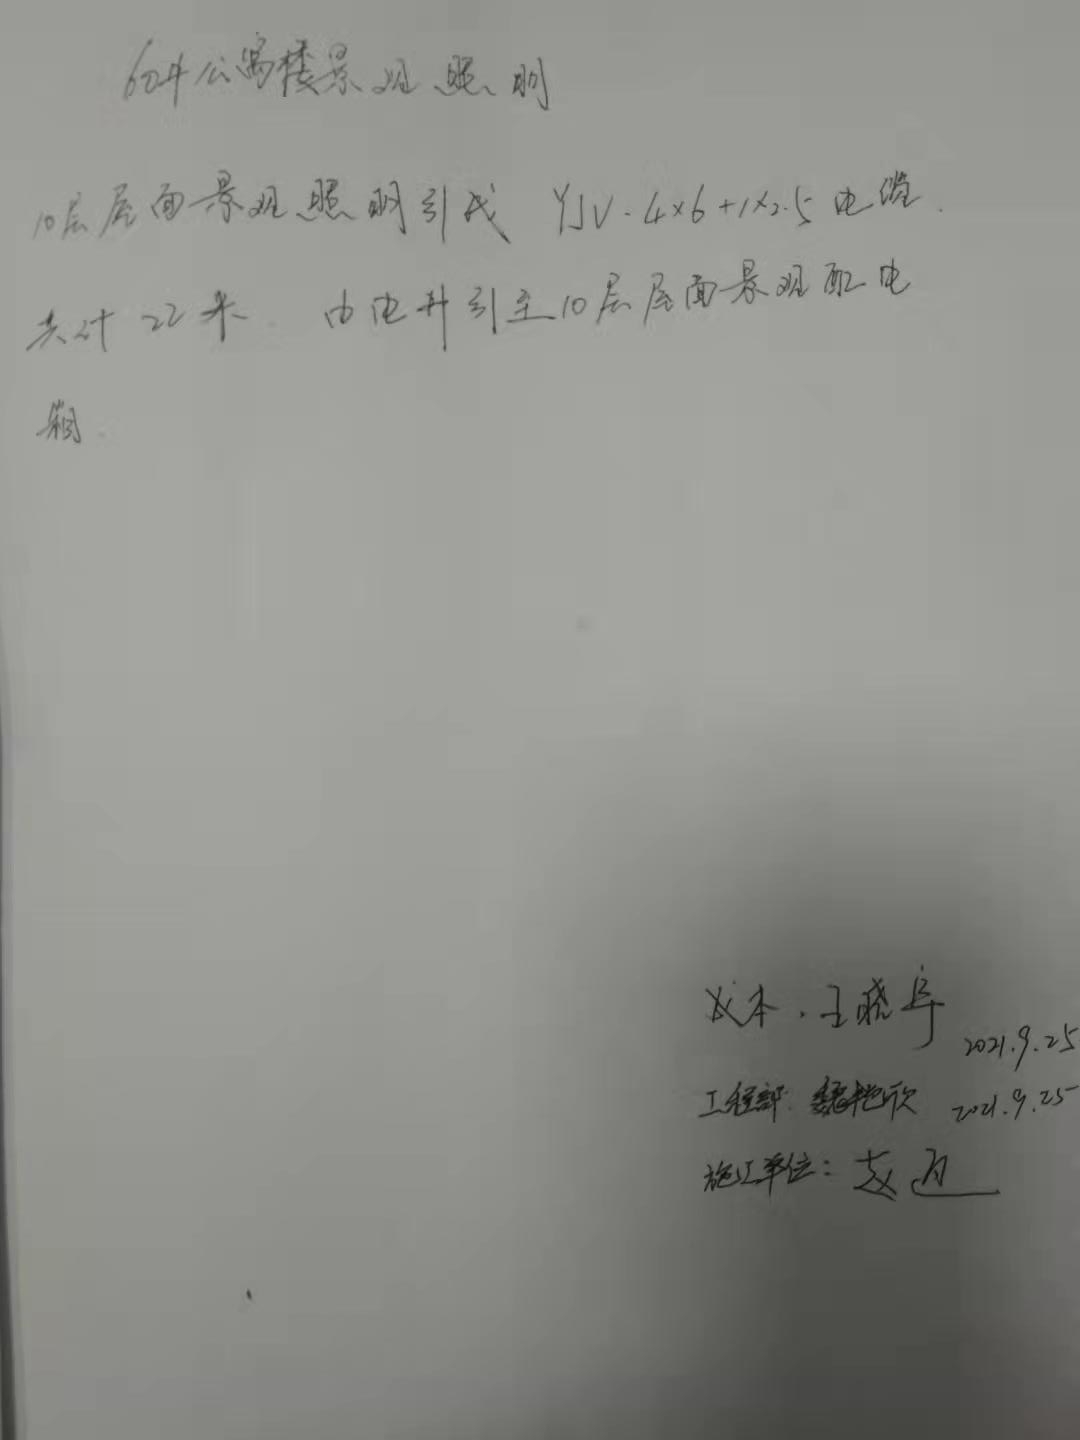 6#公寓楼景观照明
10层屋面景观照明引线 YJV-4×6+1×2.5电缆.
共计22米. 由电井引至10层屋面景观配电
箱.
成本:王晓宇 2021.9.25
工程部: 魏艳欣 2021.9.25
施工单位:赵通